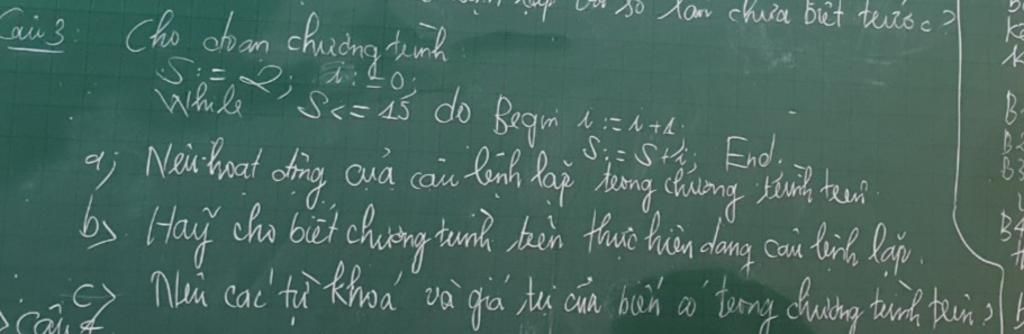 lặp với số lần chưa biết trước?
Câu 3: Cho đoạn chương trình
S:= 2; i:=0;
While S<= 15 do Begin i:=i+1;
S:= S+i; End.
a; Nêu hoạt động của câu lệnh lặp trong chương trình trên.
b> Hãy cho biết chương trình trên thực hiện dạng câu lệnh lặp.
c> Nêu các từ khoá và giá trị của biến có trong chương trình trên?
Câu 4